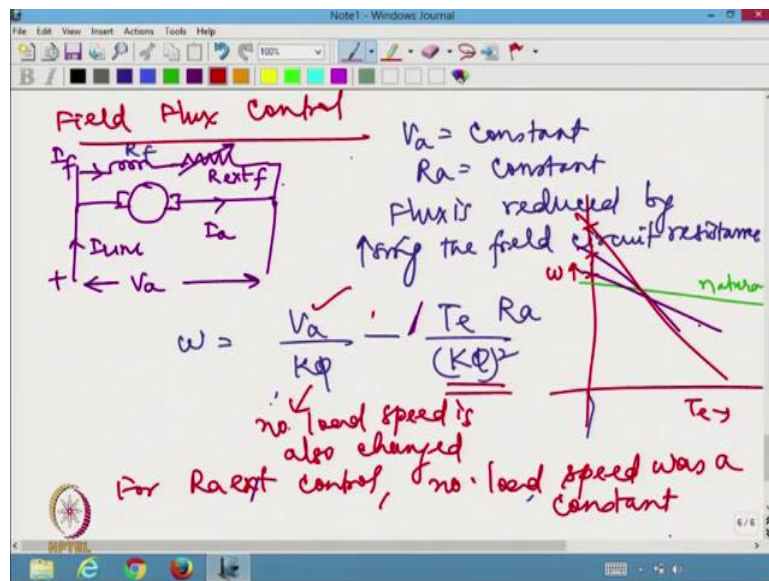 Note1 - Windows Journal
File Edit View Insert Actions Tools Help
100%
B I
Field Flux Control
If Rf
Rextf
Ia
Iline
+ ← Va →
Va = Constant
Ra = Constant
Flux is reduced by
↑sing the field circuit resistance
ω↑
natura
Te→
ω = Va/Kφ - Te Ra/(Kφ)²
no. load speed is
also changed
For Raext control, no. load speed was a
constant
6/6
NPTEL